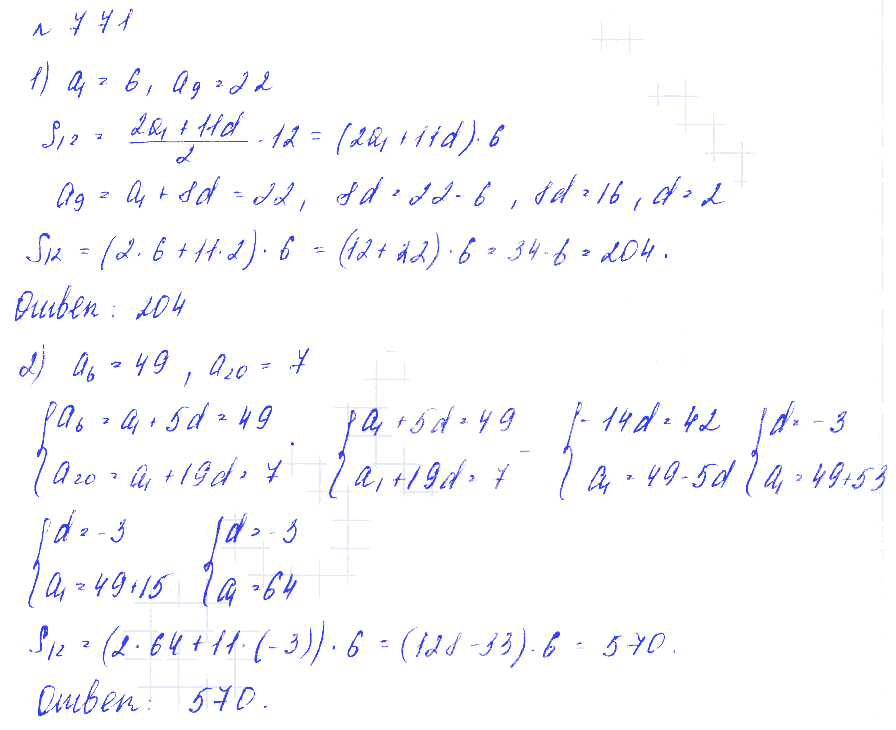 № 771
1) a₁ = 6, a₉ = 22
S₁₂ = (2a₁ + 11d)/2 · 12 = (2a₁ + 11d) · 6
a₉ = a₁ + 8d = 22, 8d = 22 - 6, 8d = 16, d = 2
S₁₂ = (2 · 6 + 11 · 2) · 6 = (12 + 22) · 6 = 34 · 6 = 204.
Ответ: 204
2) a₆ = 49, a₂₀ = 7
{ a₆ = a₁ + 5d = 49 { a₁ + 5d = 49 { -14d = 42 { d = -3
{ a₂₀ = a₁ + 19d = 7 { a₁ + 19d = 7 { a₁ = 49 - 5d { a₁ = 49 + 53
{ d = -3 { d = -3
{ a₁ = 49 + 15 { a₁ = 64
S₁₂ = (2 · 64 + 11 · (-3)) · 6 = (128 - 33) · 6 = 570.
Ответ: 570.